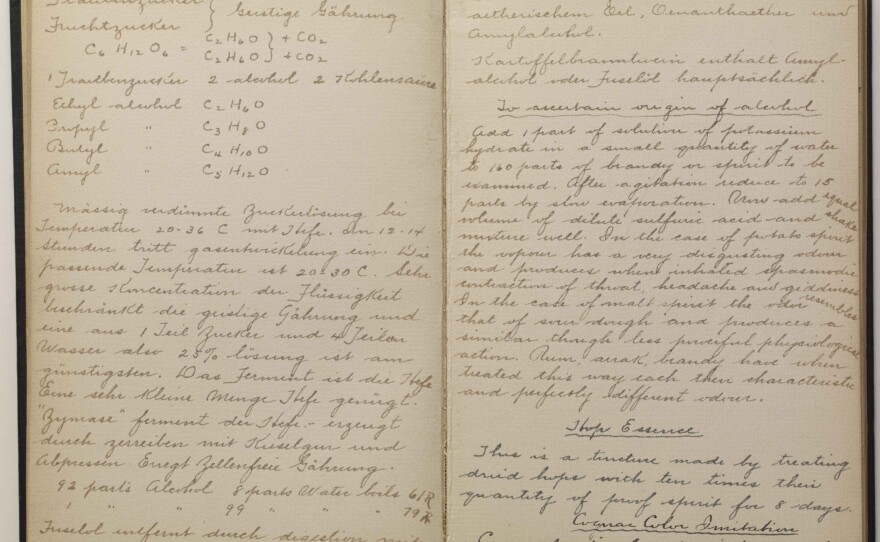 Traubenzucker
Fruchtzucker } Geistige Gährung
C6 H12 O6 = C2H6O } + CO2
C2H6O } + CO2
1 Traubenzucker 2 alcohol 2 Kohlensäure
Ethyl alcohol C2H6O
Propyl " C3H8O
Butyl " C4H10O
Amyl " C5H12O
Mässig verdünnte Zuckerlösung bei
Temperatur 20-36 C mit Hefe. In 12-14
Stunden tritt gasentwickelung ein. Die
passende Temperatur ist 20-30 C. Sehr
grosse Koncentration der Flüssigkeit
beschränkt die geistige Gährung und
eine aus 1 Teil Zucker und 4 Teilen
Wasser also 25% lösung ist am
günstigsten. Das Ferment ist die Hefe
Eine sehr kleine Menge Hefe genügt.
"Zymase" ferment der Hefe - erzeugt
durch zerreiben mit Kieselgur und
Abpressen Erregt Zellenfreie Gährung.
92 parts Alcohol 8 parts Water boils 61 R
1 " " 99 " " " 79 R
Fuselöl entfernt durch digestion mit
aetherischem Oel, Oenanthaether und
Amylalcohol.
Kartoffelbranntwein enthält Amyl-
alcohol oder Fuselöl hauptsächlich.
To ascertain origin of alcohol
Add 1 part of solution of potassium
hydrate in a small quantity of water
to 160 parts of brandy or spirit to be
examined. After agitation reduce to 15
parts by slow evaporation. Now add equal
volume of dilute sulfuric acid and shake
mixture well. In the case of potato spirit
the vapour has a very disgusting odour
and produces when inhaled spasmodic
contraction of throat, headache and giddiness
In the case of malt spirit the odor resembles
that of sour dough and produces a
similar though less powerful physiological
action. Rum, arrak, brandy have when
treated this way each their characteristic
and perfectly different odour.
Hop Essence
This is a tincture made by treating
dried hops with ten times their
quantity of proof spirit for 8 days.
Cognac Color Imitation